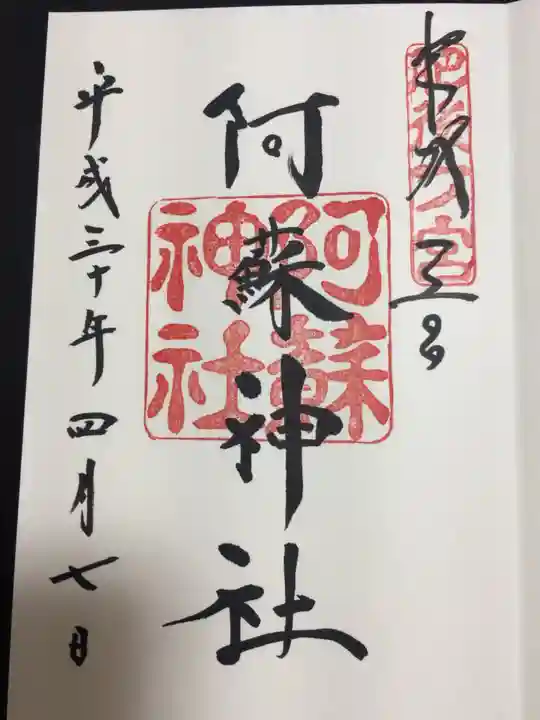 肥後一宮
阿蘇神社
阿蘇神社
平成三十年四月七日